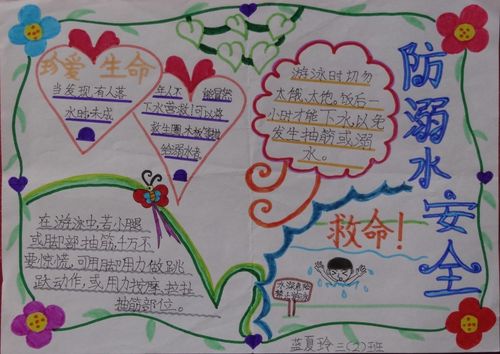 珍爱 生命
当发现有人落
水时未成
年人不能冒然
下水营救!可以将
救生圈、木板等抛
给溺水者。
游泳时切勿
太饿、太饱。饭后一
小时才能下水,以免
发生抽筋或溺
水。
防溺水。安全
在游泳中,若小腿
或脚部抽筋,千万不
要惊慌,可用脚用力做跳
跃动作,或用力按摩、拉扯
抽筋部位。
救命!
水深危险
禁止游泳
蓝夏玲 三(2)班